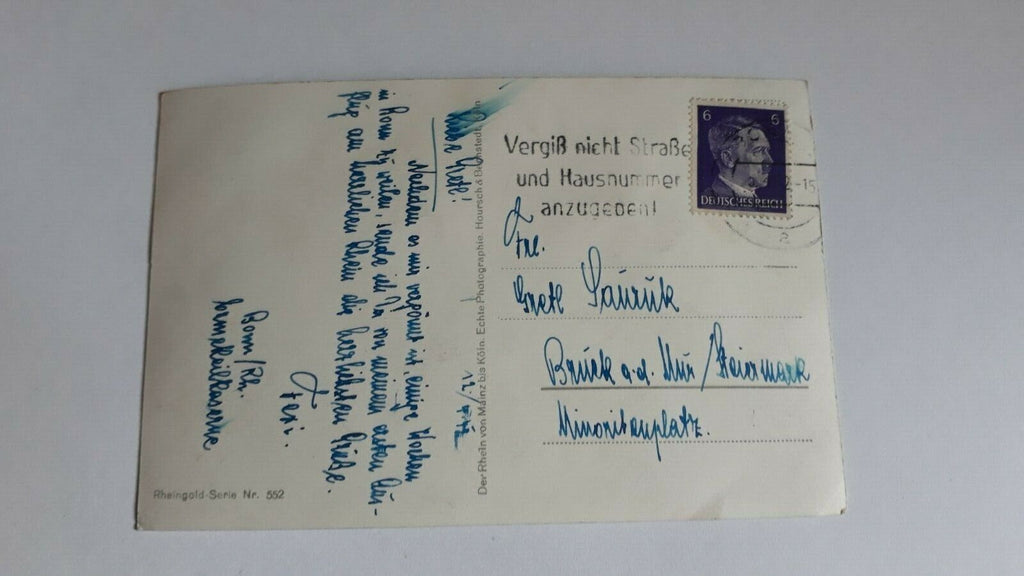 Liebe Gretl!
Nachdem es mir vergönnt ist, einige Wochen
in Bonn zu weilen, sende ich Dir von meinem ersten Aus-
flug am herrlichen Rhein die herzlichsten Grüße.
Bonn/Rh.
Rheingold-Serie Nr. 552
Der Rhein von Mainz bis Köln. Echte Photographie. Hoursch & Bechstedt, Köln
Vergiß nicht Straße
und Hausnummer
anzugeben!
6 6
DEUTSCHES REICH
Frl.
Gretl
Bruck a.d. Mur/Steiermark
Minoritenplatz.